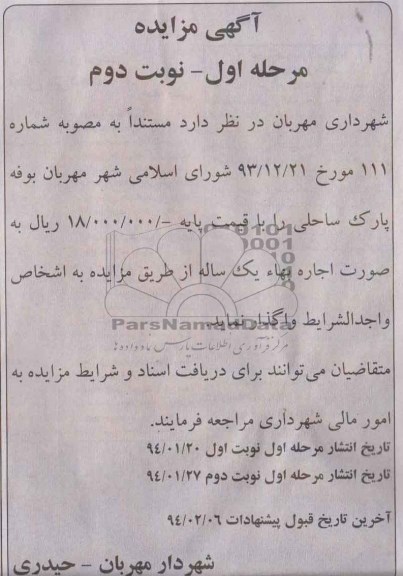 آگهی مزایده
مرحله اول- نوبت دوم
شهرداری مهربان در نظر دارد مستنداً به مصوبه شماره
۱۱۱ مورخ ۹۳/۱۲/۲۱ شورای اسلامی شهر مهربان بوفه
پارک ساحلی را با قیمت پایه -/۱۸/۰۰۰/۰۰۰ ریال به
صورت اجاره بهاء یک ساله از طریق مزایده به اشخاص
واجدالشرایط واگذار نماید.
ParsNamadData
مرکز فرآوری اطلاعات پارس نماد داده ها
متقاضیان می توانند برای دریافت اسناد و شرایط مزایده به
امور مالی شهرداری مراجعه فرمایند.
تاریخ انتشار مرحله اول نوبت اول ۹۴/۰۱/۲۰
تاریخ انتشار مرحله اول نوبت دوم ۹۴/۰۱/۲۷
آخرین تاریخ قبول پیشنهادات ۹۴/۰۲/۰۶
شهردار مهربان - حیدری